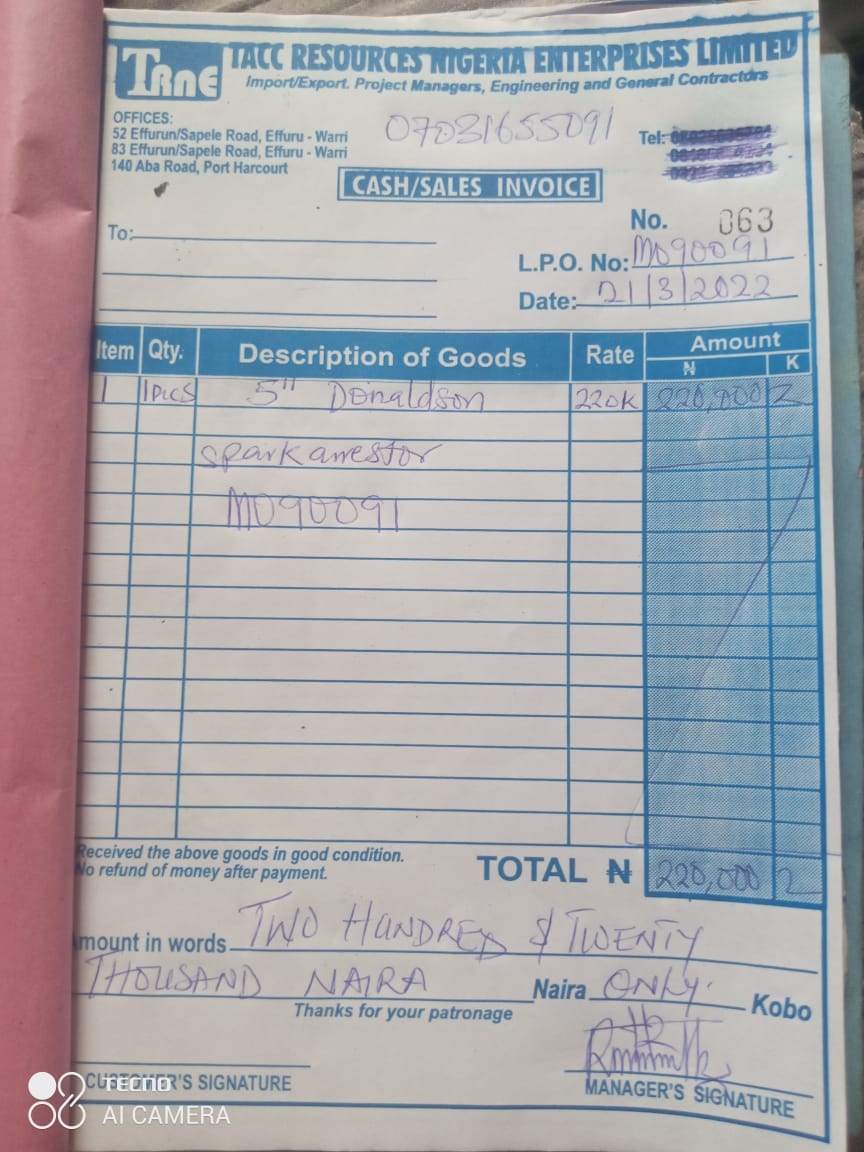 TRNE
TACC RESOURCES NIGERIA ENTERPRISES LIMITED
Import/Export. Project Managers, Engineering and General Contractors
OFFICES:
52 Effurun/Sapele Road, Effuru - Warri
83 Effurun/Sapele Road, Effuru - Warri
140 Aba Road, Port Harcourt
07031655091
Tel:
CASH/SALES INVOICE
No. 063
To:
L.P.O. No: M090091
Date: 21/3/2022
Item Qty. Description of Goods Rate Amount
₦ K
1 1pics 5" Donaldson 220K 220,000
spark arrestor
M090091
Received the above goods in good condition.
No refund of money after payment.
TOTAL ₦ 220,000
Amount in words TWO HUNDRED & TWENTY
THOUSAND NAIRA Naira ONLY. Kobo
Thanks for your patronage
CUSTOMER'S SIGNATURE
MANAGER'S SIGNATURE
TECNO
AI CAMERA